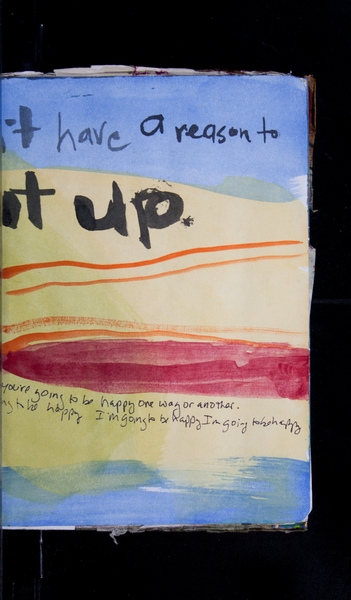 't have a reason to
t up.
you're going to be happy one way or another.
ng to be happy I'm going to be happy I'm going to be happy